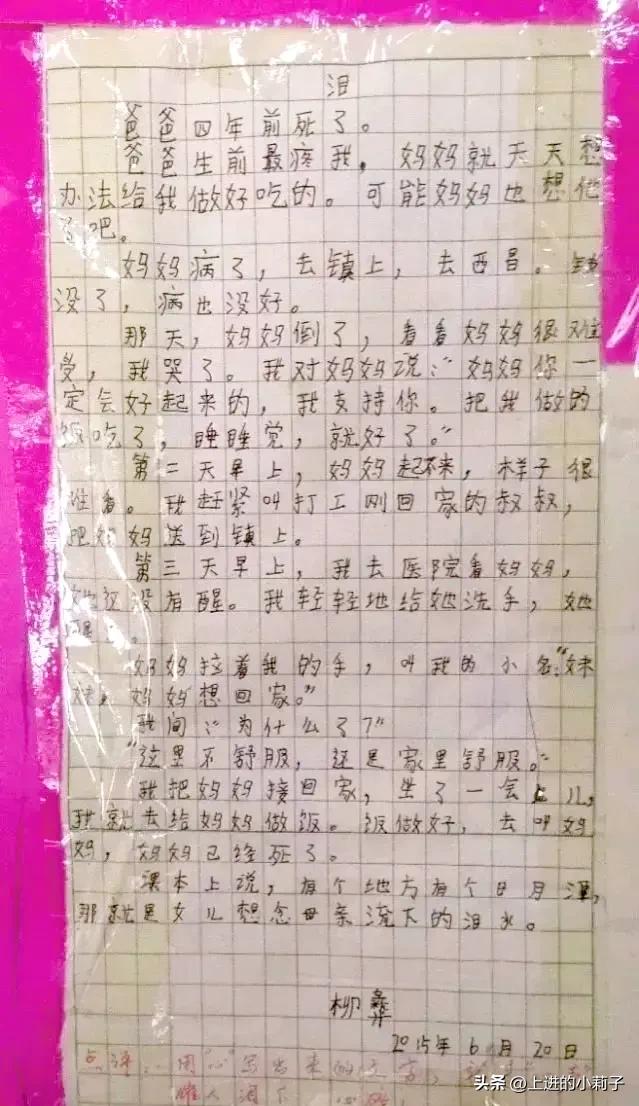 泪
爸爸四年前死了。
爸爸生前最疼我，妈妈就天天想
办法给我做好吃的。可能妈妈也想他
了吧。
妈妈病了，去镇上，去西昌。钱
没了，病也没好。
那天，妈妈倒了，看着妈妈很难
受，我哭了。我对妈妈说：“妈妈你一
定会好起来的，我支持你。把我做的
饭吃了，睡睡觉，就好了。”
第二天早上，妈妈起不来，样子很
难看。我赶紧叫打工刚回家的叔叔，
把妈妈送到镇上。
第三天早上，我去医院看妈妈，
她还没有醒。我轻轻地给她洗手，她
醒了。
妈妈拉着我的手，叫我的小名：“妹
妹，妈妈想回家。”
我问：“为什么了？”
“这里不舒服，还是家里舒服。”
我把妈妈接回家，坐了一会儿，
我就去给妈妈做饭。饭做好，去叫妈
妈，妈妈已经死了。
课本上说，有个地方有个日月潭，
那就是女儿想念母亲流下的泪水。
柳彝
2015年6月20日
点评：用“心”写出来的文字，
催人泪下
头条 @上进的小莉子